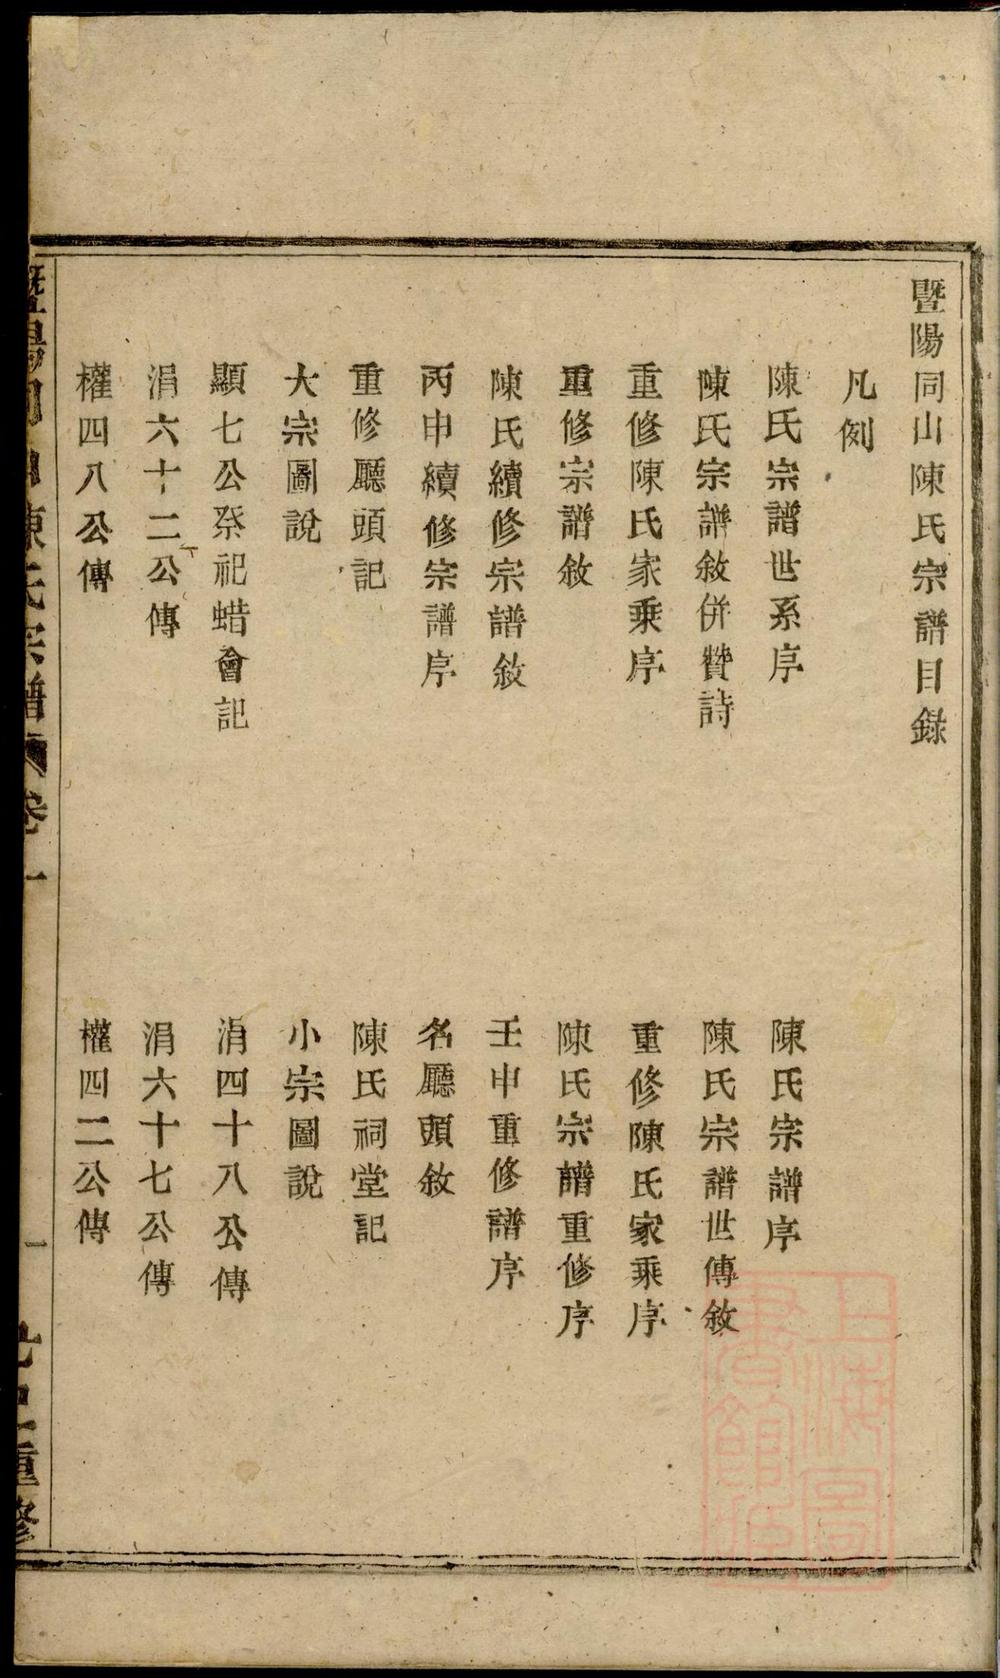 暨陽同山陳氏宗譜目錄
凡例
陳氏宗譜世系序
陳氏宗譜序
陳氏宗譜敘併贊詩
陳氏宗譜世傳敘
重修陳氏家乘序
重修陳氏家乘序
重修宗譜敘
陳氏宗譜重修序
陳氏續修宗譜敘
壬申重修譜序
丙申續修宗譜序
名廳頭敘
重修廳頭記
陳氏祠堂記
大宗圖說
小宗圖說
顯七公祭祀蜡會記
涓四十八公傳
涓六十二公傳
涓六十七公傳
權四八公傳
權四二公傳
暨陽同山陳氏宗譜 卷一
一
重修
上海圖書館藏